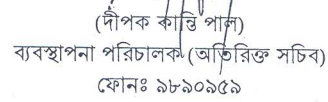 (দীপক কান্তি পাল)
ব্যবস্থাপনা পরিচালক (অতিরিক্ত সচিব)
ফোনঃ ৯৮৯০৯৫৯